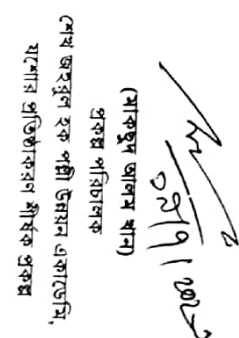 (মাকছুদ আলম খান)
প্রকল্প পরিচালক
শেখ জহুরুল হক পল্লী উন্নয়ন একাডেমি,
যশোর প্রতিষ্ঠাকরণ শীর্ষক প্রকল্প